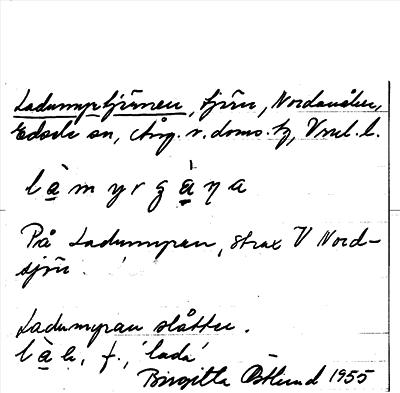 Ladumyrtjärnen, tjärn, Nordanåker,
Edsele sn, Ång. v. doms. tg, Vnrl. l.
là m y r g à ŋ a
På Ladumyran, strax V Nord-
sjön.
Ladumyran slåtter.
làh, f., 'lada'
Birgitta Östlund 1955